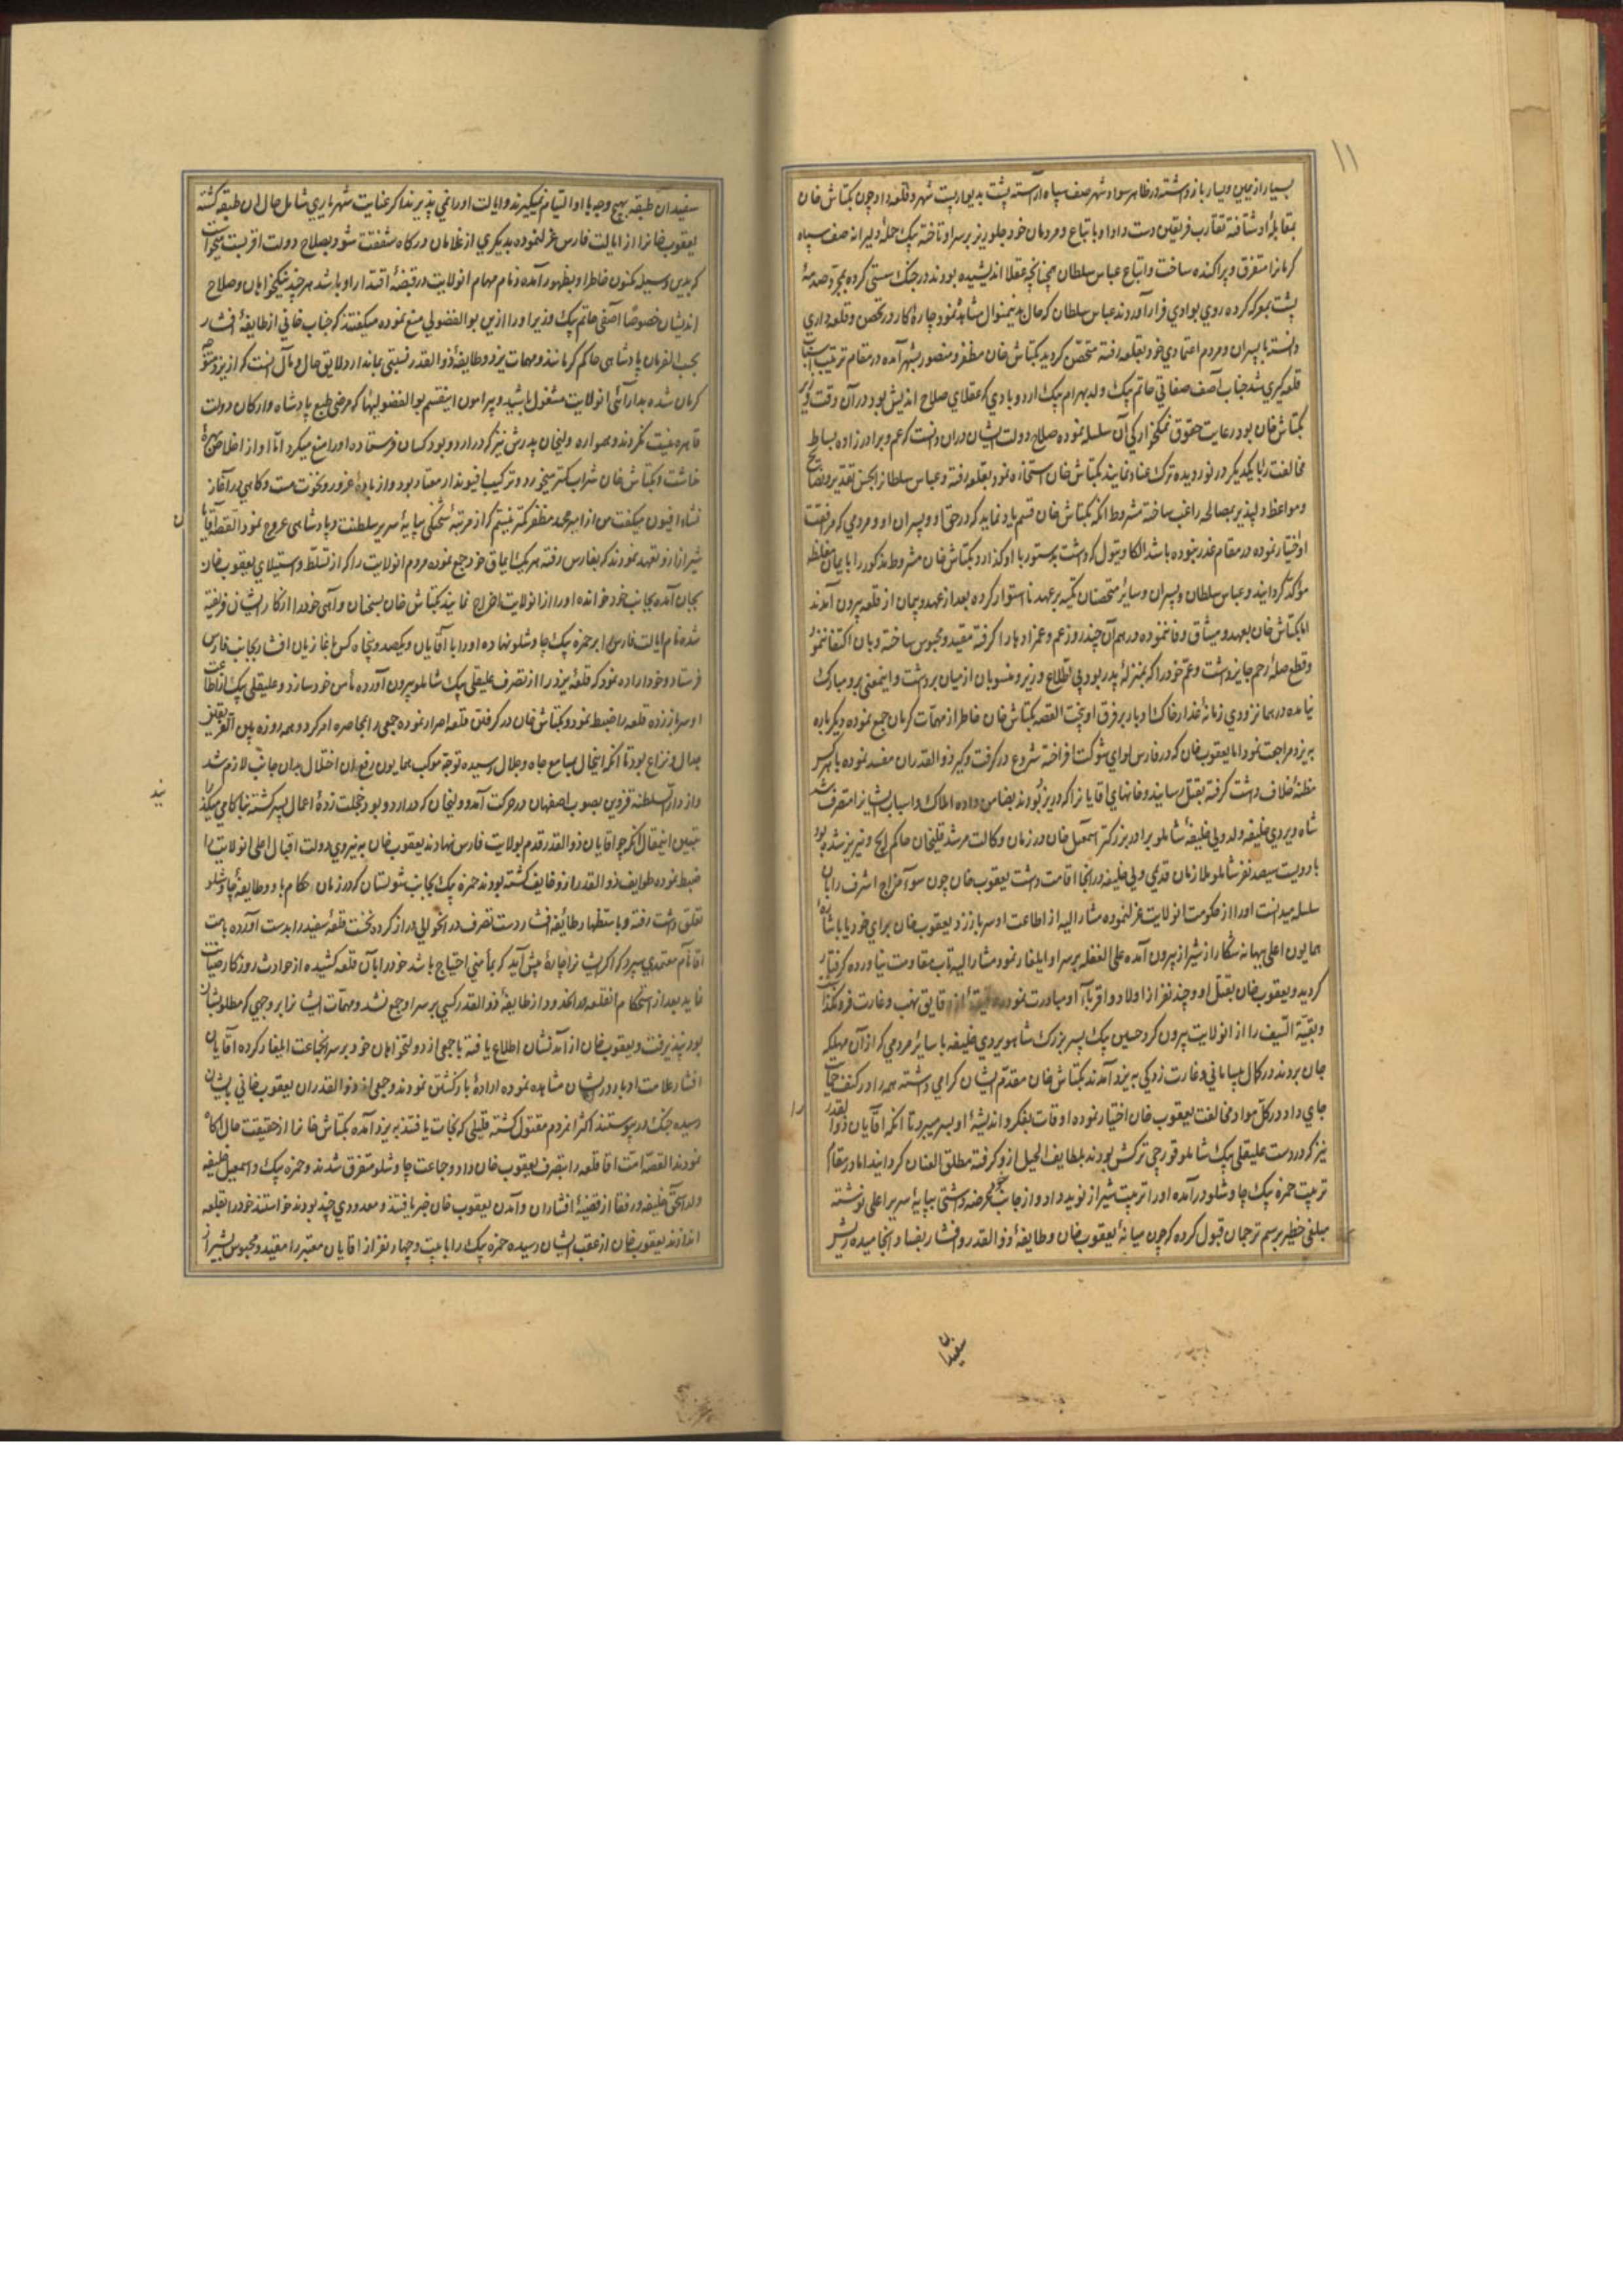 ۱۱
بسیار از یمین و یسار باز داشته در ظاهر سواد شهر صف سپاه آراسته پشت بدیوار بست شهر و قلعه داد چون بکتاش خان
بمقابله او شتافته تقارب فریقین دست داد او با تباع و مردمان خود جلوریز بر سر او تاخته بیک حمله دلیرانه صف سپاه
کرمانرا متفرق و پراکنده ساخت و اتباع عباس سلطان همچنانچه عقلا اندیشیده بودند در جنک سستی کرده بمجرد صدمهٔ
پشت بمعرکه کرده روی بوادی فرار آوردند عباس سلطان که حال بدینمنوال مشاهده نمود چارهٔ کار در تحصن و قلعه داری
دانسته با پسران و مردم اعتمادی خود بقلعه رفته متحصن کردید بکتاش خان مظفر و منصور بشهر آمده در مقام ترتیب اسباب
قلعه کیری شد جناب آصف صفاتی حاتم بیک ولد بهرام بیک اردوبادی که عقلای صلاح اندیش بود در آن وقت وزیر
بکتاش خان بود رعایت حقوق نمکخوارکی آن سلسله نموده صلاح دولت ایشان دران دانست که عم و برادرزاده بساط
مخالفت را با یکدیکر در نوردیده ترک عناد نمایند بکتاش خان استجازه نمود بقلعه رفته و عباس سلطانرا بحسن تقدیر و نصایح
و مواعظ دلپذیر بمصالحه راغب ساخته مشروط انکه بکتاش خان قسم یاد نماید که در حق او و پسران او و مردمی که مرافقت
او اختیار نموده در مقام غدر نبوده باشد الکا و تیول که داشت بدستور با او کذارد و بکتاش خان مشروط مذکور را بایمان مغلظه
مؤکد کردانید و عباس سلطان و پسران و سایر متحصنان تکیه بر عهد نااستوار کرده بعد از عهد و پیمان از قلعه بیرون آمدند
اما بکتاش خان بعهد و میثاق وفا ننموده در همان چند روز عم و عمزادها را کرفته مقید و محبوس ساخته و بان اکتفا ننمود
و قطع صلهٔ رحم جایز داشت و عم خود را که بمنزلهٔ پدر بود بی اطلاع وزیر و منسوبان از میان برداشت و اینمعنی برو مبارک
نیامده در همان زودی زمانهٔ غدار خاک ادبار بر فرق او بیخت القصه بکتاش خان خاطر از مهمات کرمان جمع نموده دیکر باره
به یزد مراجعت نمود اما یعقوب خان که در فارس لوای شوکت افراخته شروع در کرفت و کیر ذوالقدران مفسد نموده با هرکس
مظنهٔ خلاف داشت کرفته بقتل رسانید و خانهای اقایانرا که در یزد بودند بضامن داده املاک و اسباب ایشانرا متصرف شد
شاه ویردی خلیفه ولد ولی خلیفهٔ شاملو برادر بزرکتر اسمعیل خان در زمان وکالت مرشد قلیخان حاکم ایج و نیریز شده بود
با دویست سیصد نفر شاملو ملازمان قدیمی ولی خلیفه در انجا اقامت داشت یعقوب خان چون سوء مزاج اشرف را بان
سلسله میدانست اورا از حکومت انولایت عزل نموده مشارالیه از اطاعت او سر باز زد یعقوب خان برای خود یا باشارهٔ
همایون اعلی ببهانهٔ شکار از شیراز بیرون آمده علی الغفله بر سر او ایلغار نمود مشارالیه تاب مقاومت نیاورده کرفتار
کردید و یعقوب خان بقتل او و چند نفر از اولاد و اقرباء او مبادرت نموده دقیقهٔ از دقایق نهب و غارت فرونکذاشت
و بقیة السیف را از انولایت بیرون کرد حسین بیک پسر بزرک شاهویردی خلیفه با سایر مردمی که از آن مهلکه
جان بردند در کمال بیسامانی و غارت زدکی به یزد آمدند بکتاش خان مقدم ایشان کرامی داشته همه را در کنف حمایت
جای داد در کل مواد مخالفت یعقوب خان اختیار نموده اوقات بفکر و اندیشهٔ او بسر میبرد تا انکه اقایان ذوالقدر
نیز که در دست علیقلی بیک شاملو قورچی ترکش بودند بلطایف الحیل ازو کرفته مطلق العنان کردانید اما در مقام
تربیت حمزه بیک چاوشلو درآمده اورا تربیت شیراز نوید داد و از جانب خود عرضه داشتی بپایهٔ سریر اعلی نوشته
مبلغی خطیر برسم ترجمان قبول کرده که چون میانهٔ یعقوب خان و طایفهٔ ذوالقدر و افشار بفساد انجامیده ریش
سفیدان
سفیدان طبقه بهیچ وجه با او التیام نمیکیرند و ایالت او راضی نمی پذیرند اکر عنایت شهریاری شامل حال ان طبقه کشته
یعقوب خانرا از ایالت فارس عزل نموده بدیکری از غلامان درکاه شفقت شود بصلاح دولت اقربست میخواست
که بدین وسیله مکنون خاطر او بظهور آمده زمام مهام انولایت در قبضهٔ اقتدار او باشد هر چند نیکخواهان و صلاح
اندیشان خصوصا آصفی حاتم بیک وزیر اورا ازین بوالفضولی منع نموده میکفتند که جناب خانی از طایفهٔ افشار
بحسب الفرمان پادشاهی حاکم کرمانند و مهمات یزد و طایفهٔ ذوالقدر نسبتی بما ندارد لایق حال و مآل آنست که از یزد متوجه
کرمان شده بدارائی انولایت مشغول باشید و پیرامون اینقسم بوالفضولیها که مرضی طبع پادشاه و ارکان دولت
قاهره نیست نکردند و همواره ولیخان پدرش نیز که در اردو بود کسان فرستاده اورا منع میکرد اما او از اخلاص بهرهٔ
نداشت و بکتاش خان شراب کمتر میخورد و ترکیب افیوندار معتاد بود و از بادهٔ غرور و نخوت مست و کاهی در آغاز
نشاء افیون میکفت من از امیر محمد مظفر کمتر نیستم که از مرتبهٔ شحنکی بپایهٔ سریر سلطنت و پادشاهی عروج نمود القصه اقایان
شیراز ازو تعهد نمودند که بفارس رفته هر یک ایماق خود جمع نموده مردم انولایت را که از تسلط و استیلای یعقوب خان
بجان آمده بجانب خود خوانده اورا از انولایت اخراج نمایند بکتاش خان بسخنان واهی خود را از کار ایشان فریفته
شده نام ایالت فارس را بر حمزه بیک چاوشلو نهاده اورا با آقایان و یکصد و پنجاه کس از غازیان افشار بجانب فارس
فرستاد و خود اراده نمود که قلعهٔ یزد را از تصرف علیقلی بیک شاملو بیرون آورده مأمن خود سازد و علیقلی بیک از اطاعت
او سر باز زده قلعه را ضبط نمود و بکتاش خان در کرفتن قلعه اصرار نموده جمعی را بمحاصره امر کرد و همه روزه بین الفریقین
جدال و نزاع بود تا انکه اینحال بمسامع جاه و جلال رسیده توجه موکب همایون برفع ان اختلال بدان جانب لازم شد
و از دار السلطنه قزوین بصوب اصفهان در حرکت آمد و ولیخان که در اردو بود خجلت زدهٔ اعمال پسر کشته بناکامی میکذرانید
تبیین اینمقال انکه چو اقایان ذوالقدر قدم بولایت فارس نهادند یعقوب خان به نیروی دولت اقبال اعلی انولایت را
ضبط نموده طوایف ذوالقدر ازو خایف کشته بودند حمزه بیک بجانب شولستان که در زمان حکام با و و طایفهٔ چاوشلو
تعلق داشت رفته و باستظهار طایفهٔ افشار دست تصرف در انحوالی دراز کرده نخست قلعهٔ سفید را بدست آورده بامت
اقا نام معتمدی سپرد که اکر ایشانرا چارهٔ پیش آید که بمأمنی احتیاج باشد خود را بان قلعه کشیده از حوادث روزکار صیانت
نماید بعد از استحکام انقلعه از طایفهٔ ذوالقدر کسی بر سر او جمع نشد و مهمات ایشانرا بر وجهی که مطلوب ایشان
بود نپذیرفت و یعقوب خان از آمدنشان اطلاع یافته با جمعی از دولتخواهان خود بر سر انجماعت ایلغار کرده اقایان
افشار علامت ادبار در ایشان مشاهده نموده ارادهٔ بازکشتن نمودند و جمعی از ذوالقدران یعقوب خانی بایشان
رسیده جنک در پیوستند اکثر انمردم مقتول کشته قلیلی که نجات یافتند به یزد آمده بکتاش خانرا از حقیقت حال اکاه
نمودند القصه امت اقا قلعه را بتصرف یعقوب خان داد و جماعت چاوشلو متفرق شدند و حمزه بیک و اسمعیل خلیفه
ولد الحق خلیفه و رفقا از قضیهٔ افشاران و آمدن یعقوب خان خبر یافتند و معدودی چند بودند خواستند خود را بقلعه
اندازند یعقوب خان از عقب ایشان رسیده حمزه بیک را با بیست و چهار نفر از اقایان معتبر را مقید و محبوس بشیراز